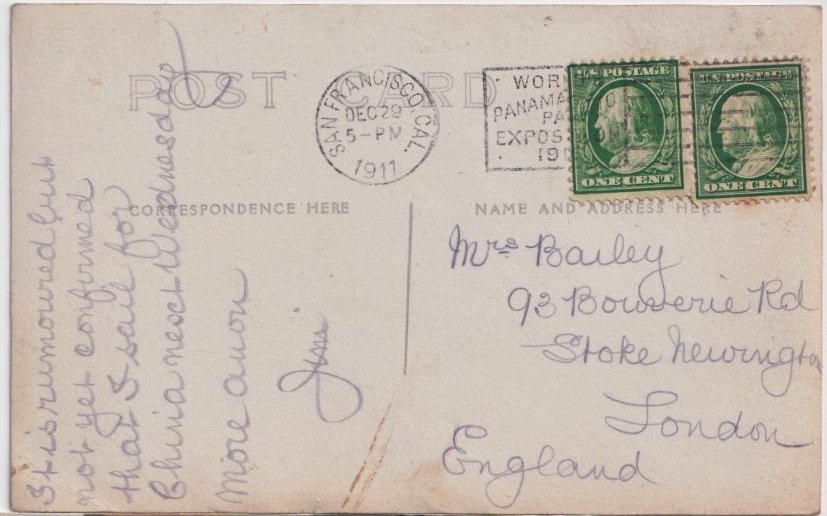 POST CARD
SAN FRANCISCO, CAL.
DEC 29
5-PM
1911
WOR
PANAMA
PA
EXPOS
19
U.S. POSTAGE
ONE CENT
U.S. POSTAGE
ONE CENT
CORRESPONDENCE HERE
NAME AND ADDRESS HERE
It is rumoured but
not yet confirmed
that I sail for
China next Wednesday
More anon
Jim
Mrs Bailey
93 Bouverie Rd
Stoke Newington
London
England